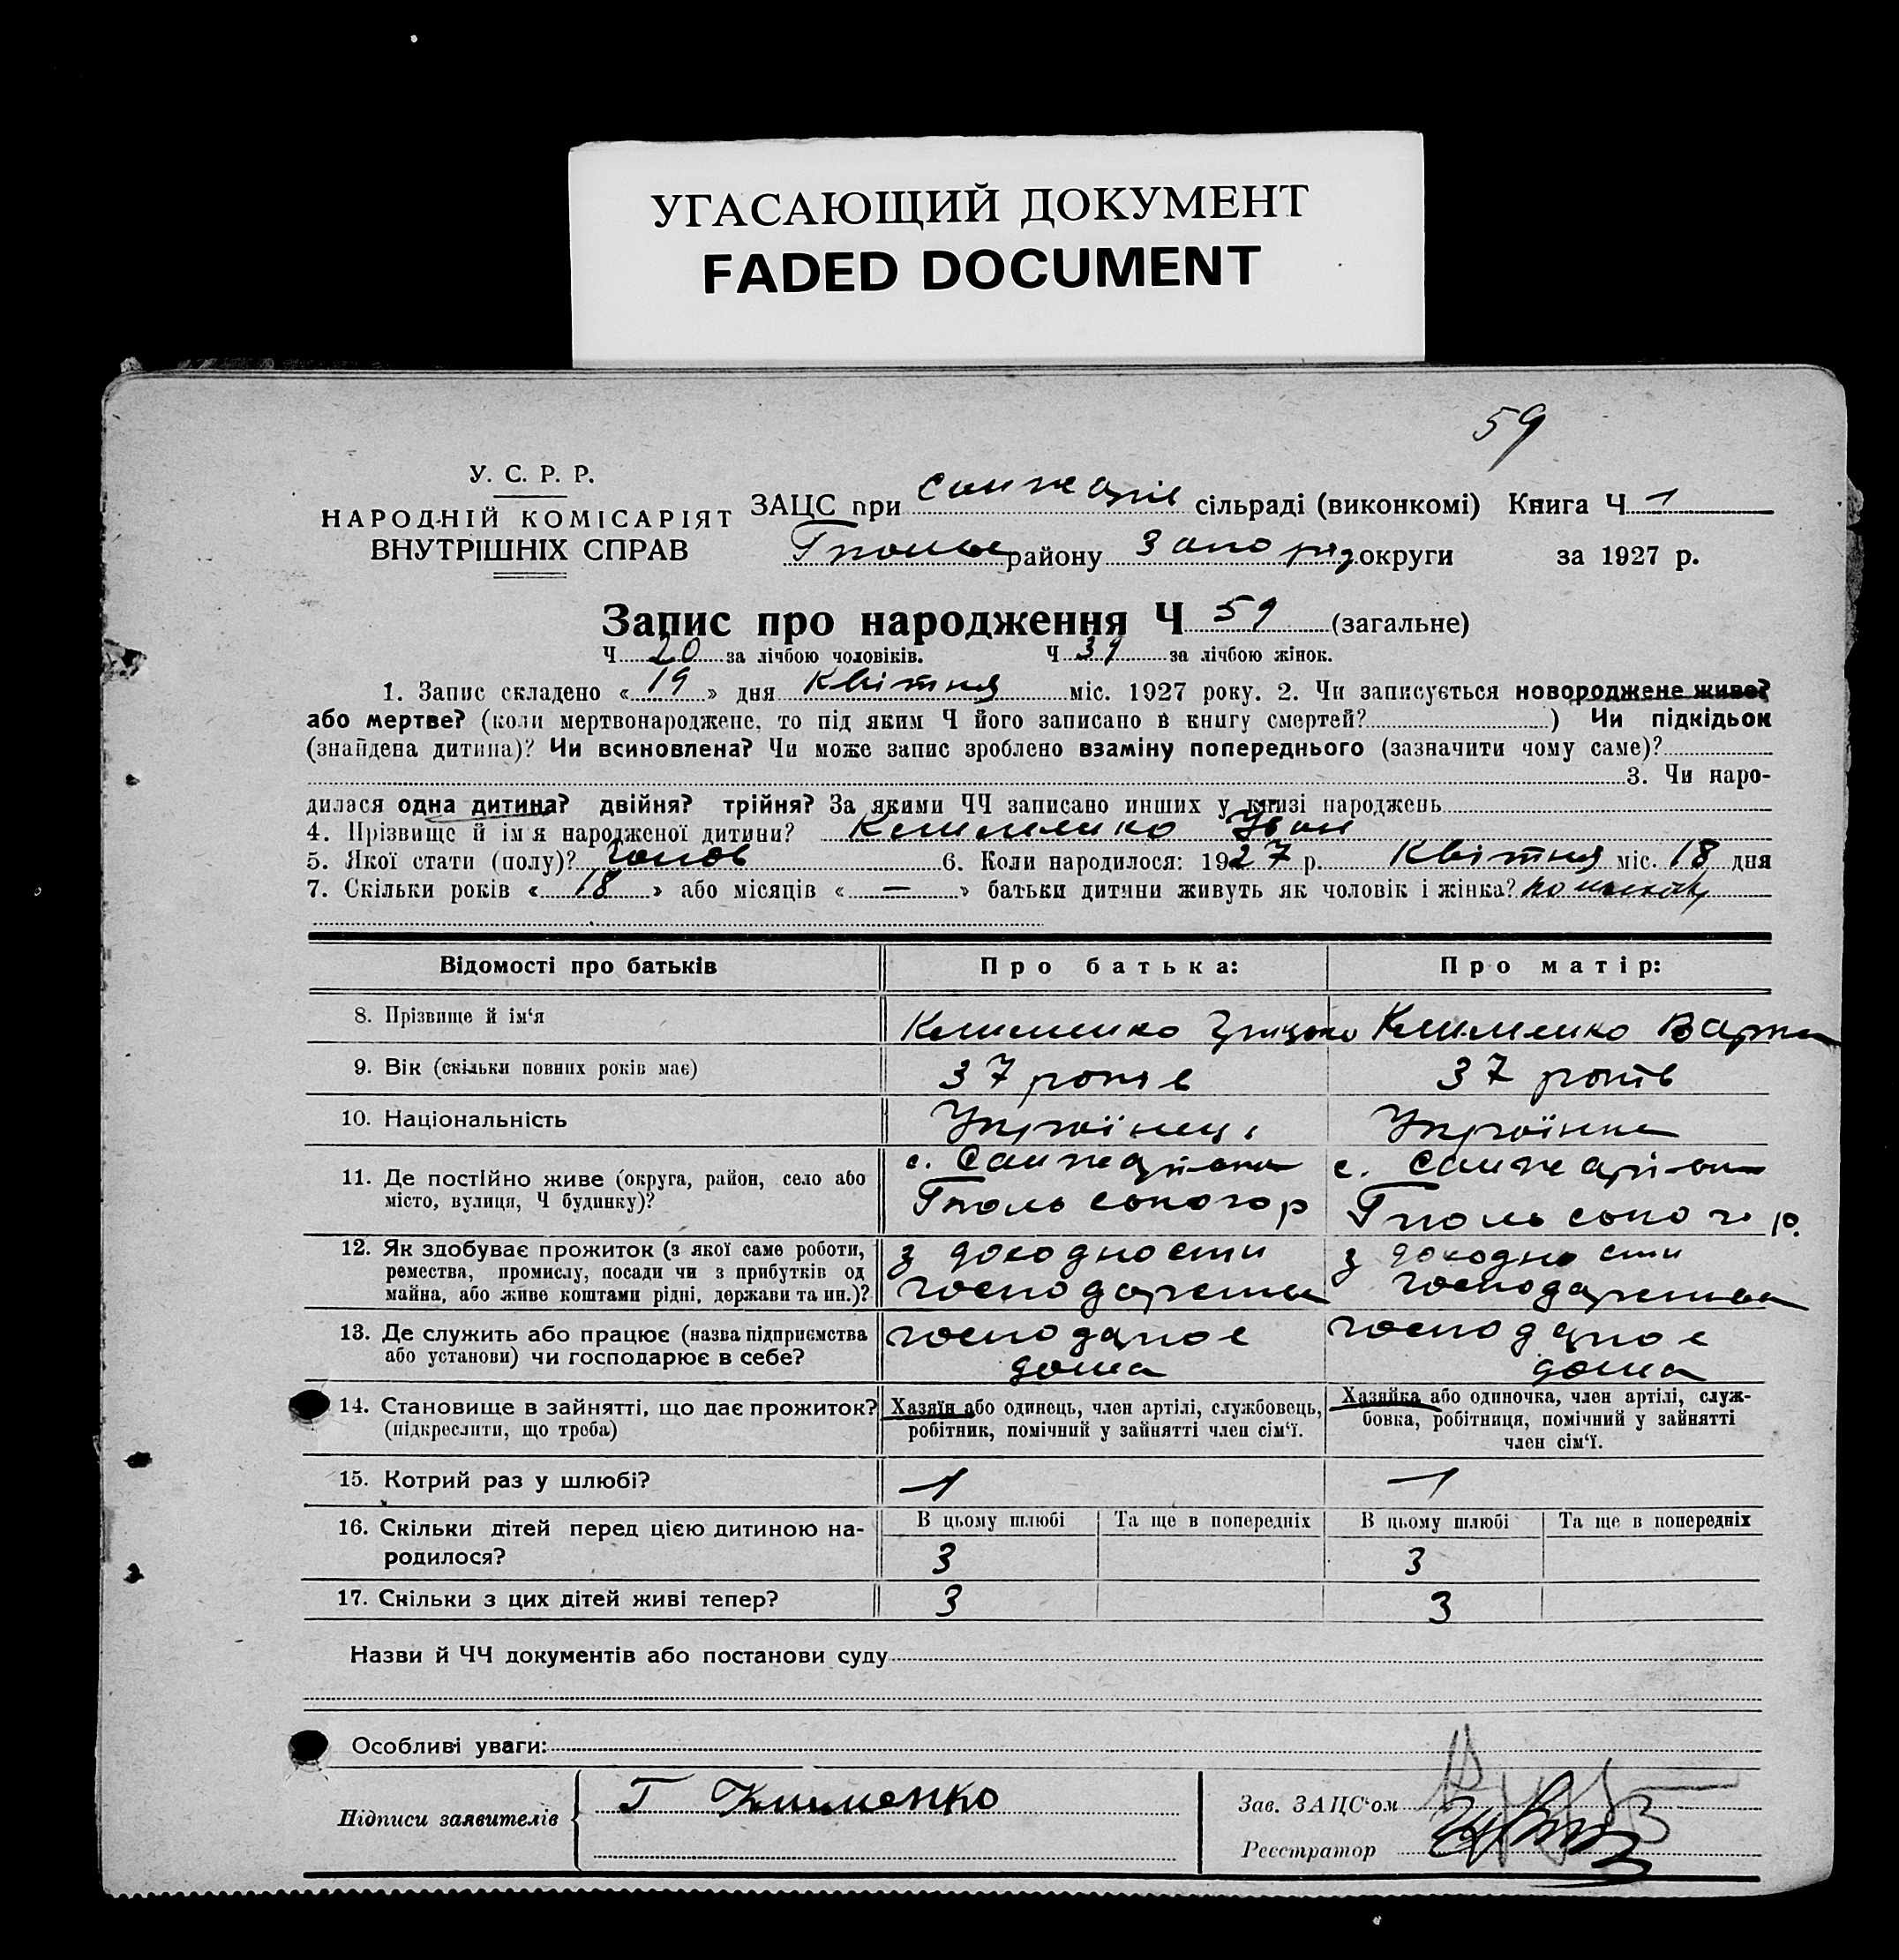 УГАСАЮЩИЙ ДОКУМЕНТ
FADED DOCUMENT
59
У. С. Р. Р.
НАРОДНІЙ КОМІСАРІЯТ
ВНУТРІШНІХ СПРАВ
ЗАЦС при Санжарів сільраді (виконкомі) Книга Ч 1
району Запоріз округи за 1927 р.
Запис про народження Ч 59 (загальне)
Ч 20 за лічбою чоловіків. Ч 39 за лічбою жінок.
1. Запис складено « 19 » дня Квітня міс. 1927 року. 2. Чи записується новороджене живе?
або мертве? (коли мертвонароджене, то під яким Ч його записано в книгу смертей? ) Чи підкідьок
(знайдена дитина)? Чи всиновлена? Чи може запис зроблено взаміну попереднього (зазначити чому саме)?
3. Чи наро-
дилася одна дитина? двійня? трійня? За якими ЧЧ записано инших у книзі народжень
4. Прізвище й ім'я народженої дитини? Клименко Іван
5. Якої стати (полу)? Чолов 6. Коли народилося: 1927 р. Квітня міс. 18 дня
7. Скільки років « 18 » або місяців « — » батьки дитини живуть як чоловік і жінка?
Відомості про батьків Про батька: Про матір:
8. Прізвище й ім'я Клименко Грицько Клименко Варка
9. Вік (скільки повних років має) 37 років 37 років
10. Національність Українець Українка
11. Де постійно живе (округа, район, село або місто, вулиця, Ч будинку)? с. Санжарівка Гпольського р с. Санжарівка Гпольського р.
12. Як здобуває прожиток (з якої саме роботи, ремества, промислу, посади чи з прибутків од майна, або живе коштами рідні, держави та ин.)? з доходности господарства з доходности господарства
13. Де служить або працює (назва підприємства або установи) чи господарює в себе? господарює дома господарює дома
14. Становище в зайнятті, що дає прожиток? (підкреслити, що треба) Хазяїн або одинець, член артілі, службовець, робітник, помічний у зайнятті член сім'ї. Хазяйка або одиночка, член артілі, служ-бовка, робітниця, помічний у зайнятті член сім'ї.
15. Котрий раз у шлюбі? 1 1
16. Скільки дітей перед цією дитиною на-родилося? В цьому шлюбі Та ще в попередніх В цьому шлюбі Та ще в попередніх
3 3
17. Скільки з цих дітей живі тепер? 3 3
Назви й ЧЧ документів або постанови суду
Особливі уваги:
Підписи заявителів Г Клименко
Зав. ЗАЦС'ом
Реєстратор